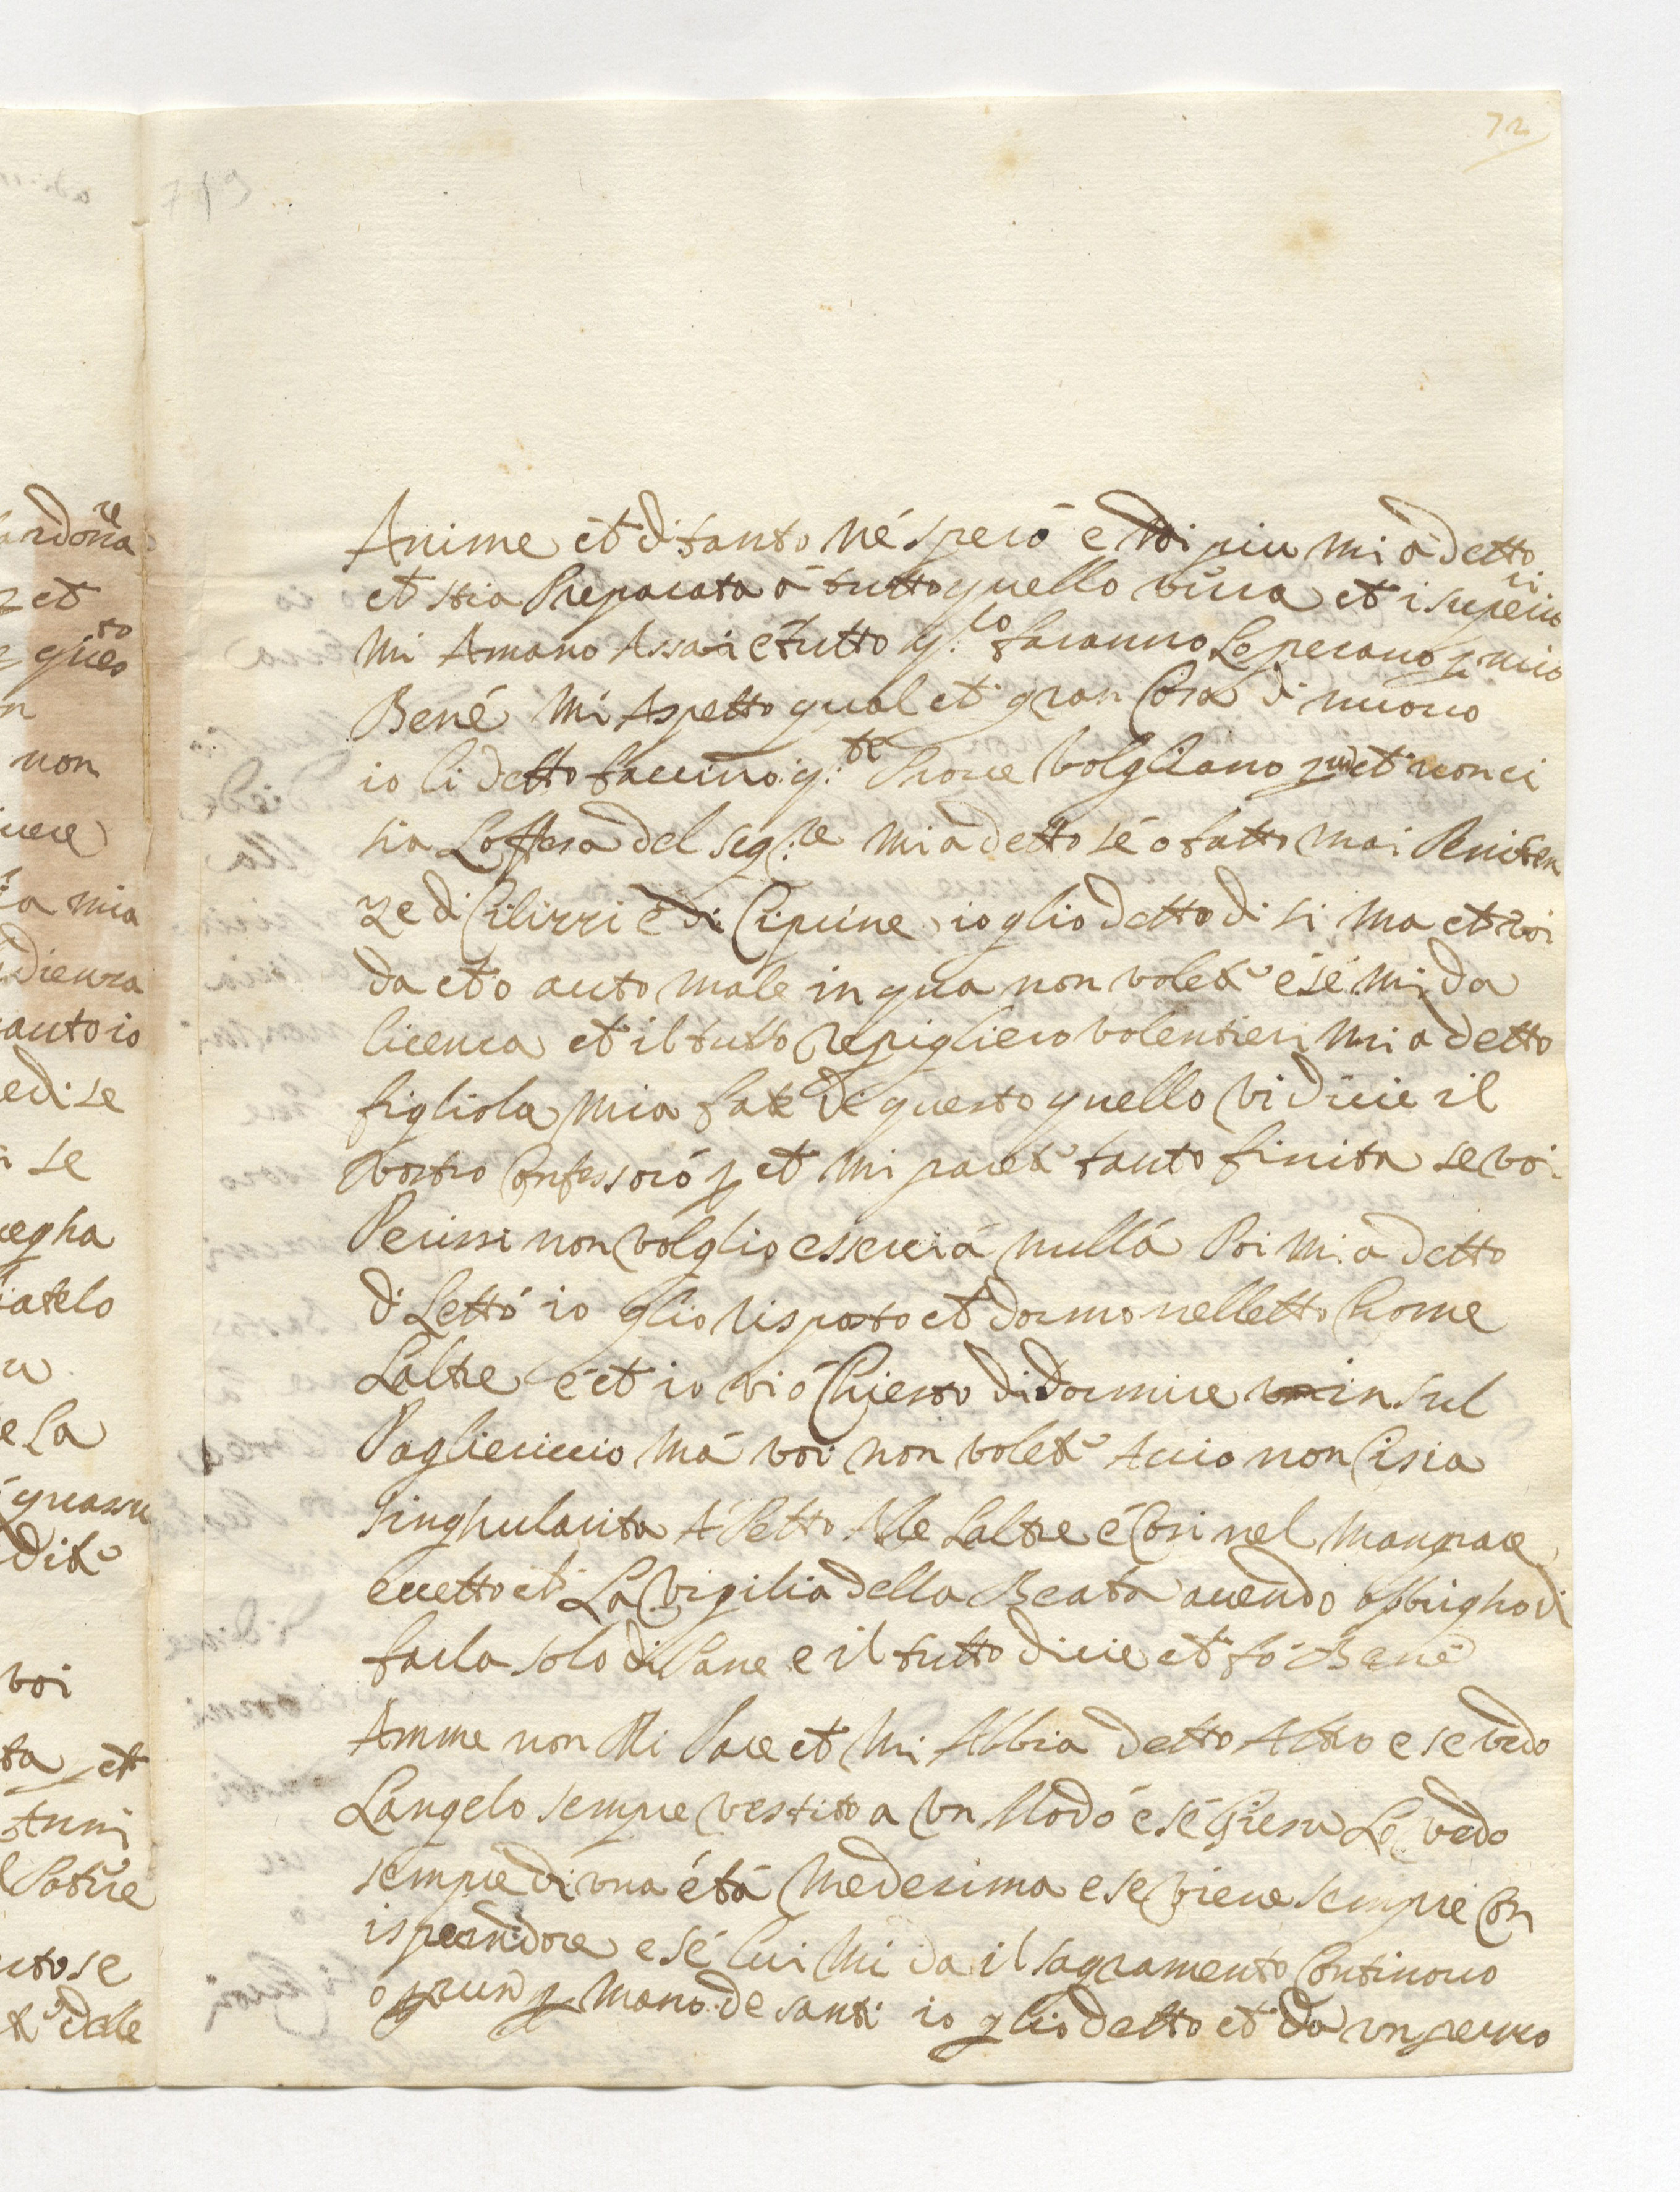 72
Anime et di tanto né sperò e poi piu mi à detto
et stia Preparata à tutto quello vura et i superiori
Mi Amano Assai e tutto q.lo faranno Lo perano p mio
Bené Mi Aspetto qual et gran Cosa di nuovo
io li detto faccino q.te Prove Volgliano pur et non ci
sia Loffesa del Sig.re Mi a detto sé o fatto mai Peniten
ze di Cilizzi e di Cipine io glio detto di si Ma et voi
da et o auto Male in qua non volete e sé Mi da
licenza et il tutto Repigliero volentieri Mi a detto
figliola Mia fate di questo quello Vi dicie il
Vostro Confessoró p et Mi parete tanto finita se voi
Perissi non volglio esserciá nullá Poi Mi a detto
di Lettó io glio Risposto et dormo nelletto Chome
Laltre e et io vi ó Chiesto di dormire in sul
Pagliericcio Má voi non volete Accio non Ci sia
Singhularita A Petto Alle Laltre é Cosi nel Mangiare
eccetto et La Vigilia della Beata avendo obbrigho di
farla solo di Pane e il tutto dicie et fó Bene
Amme non Mi Pare et Mi Abbia detto Altro e se vedo
Langelo sempre Vestito a Un Modó e sé Giesu Lo vedo
sempre di una étá Medesima e se Viene sempre Con
isprendore e sé lui Mi da il sagramento Continovo
o pure p Mano de santi io glio detto et da un pezzo